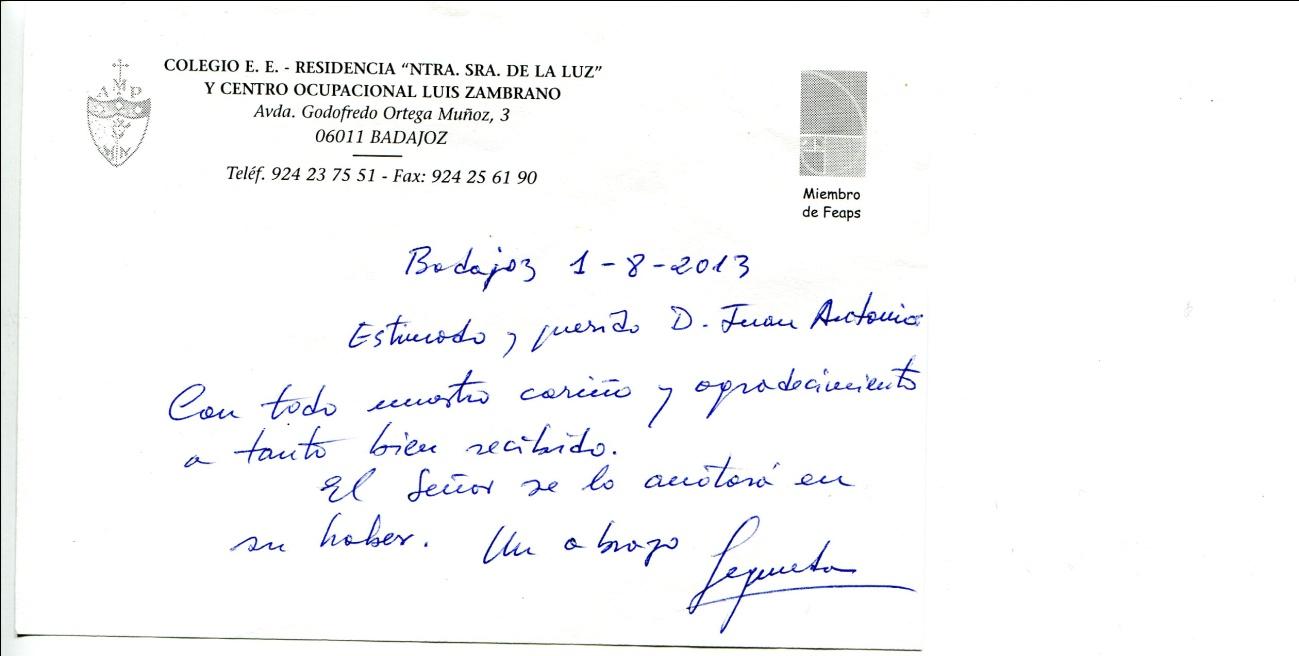 COLEGIO E. E. - RESIDENCIA “NTRA. SRA. DE LA LUZ”
Y CENTRO OCUPACIONAL LUIS ZAMBRANO
Avda. Godofredo Ortega Muñoz, 3
06011 BADAJOZ
Teléf. 924 23 75 51 - Fax: 924 25 61 90
A M P
Miembro
de Feaps
Badajoz 1-8-2013
Estimado y querido D. Juan Antonio
Con todo nuestro cariño y agradecimiento
a tanto bien recibido.
El Señor se lo anotará en
su haber. Un abrazo